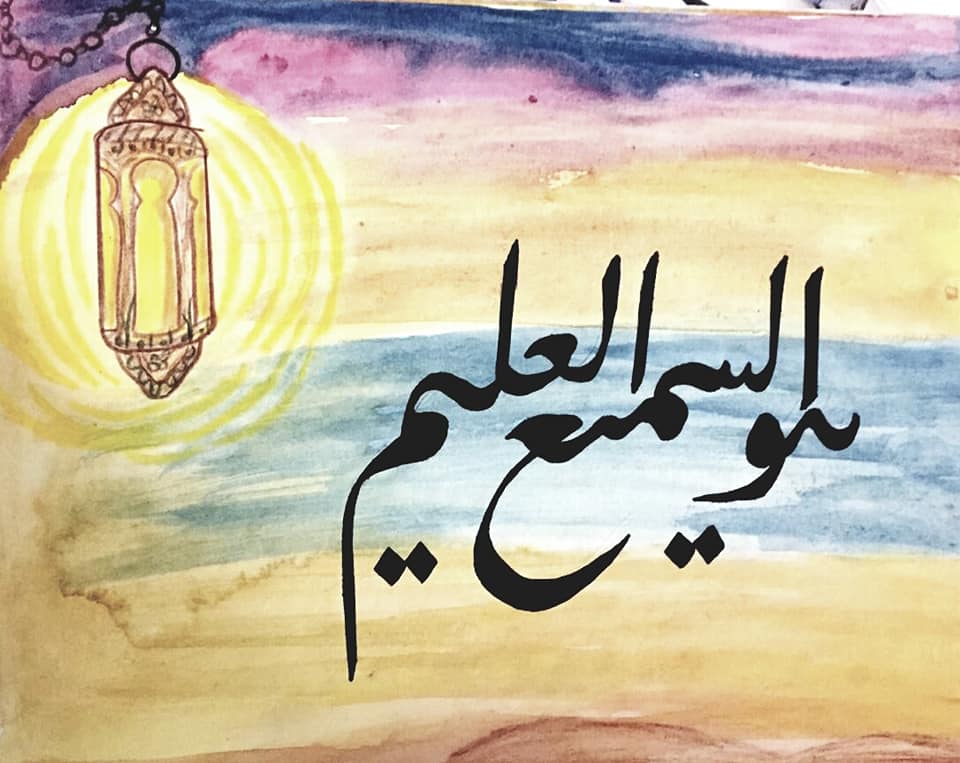 هو السميع العليم